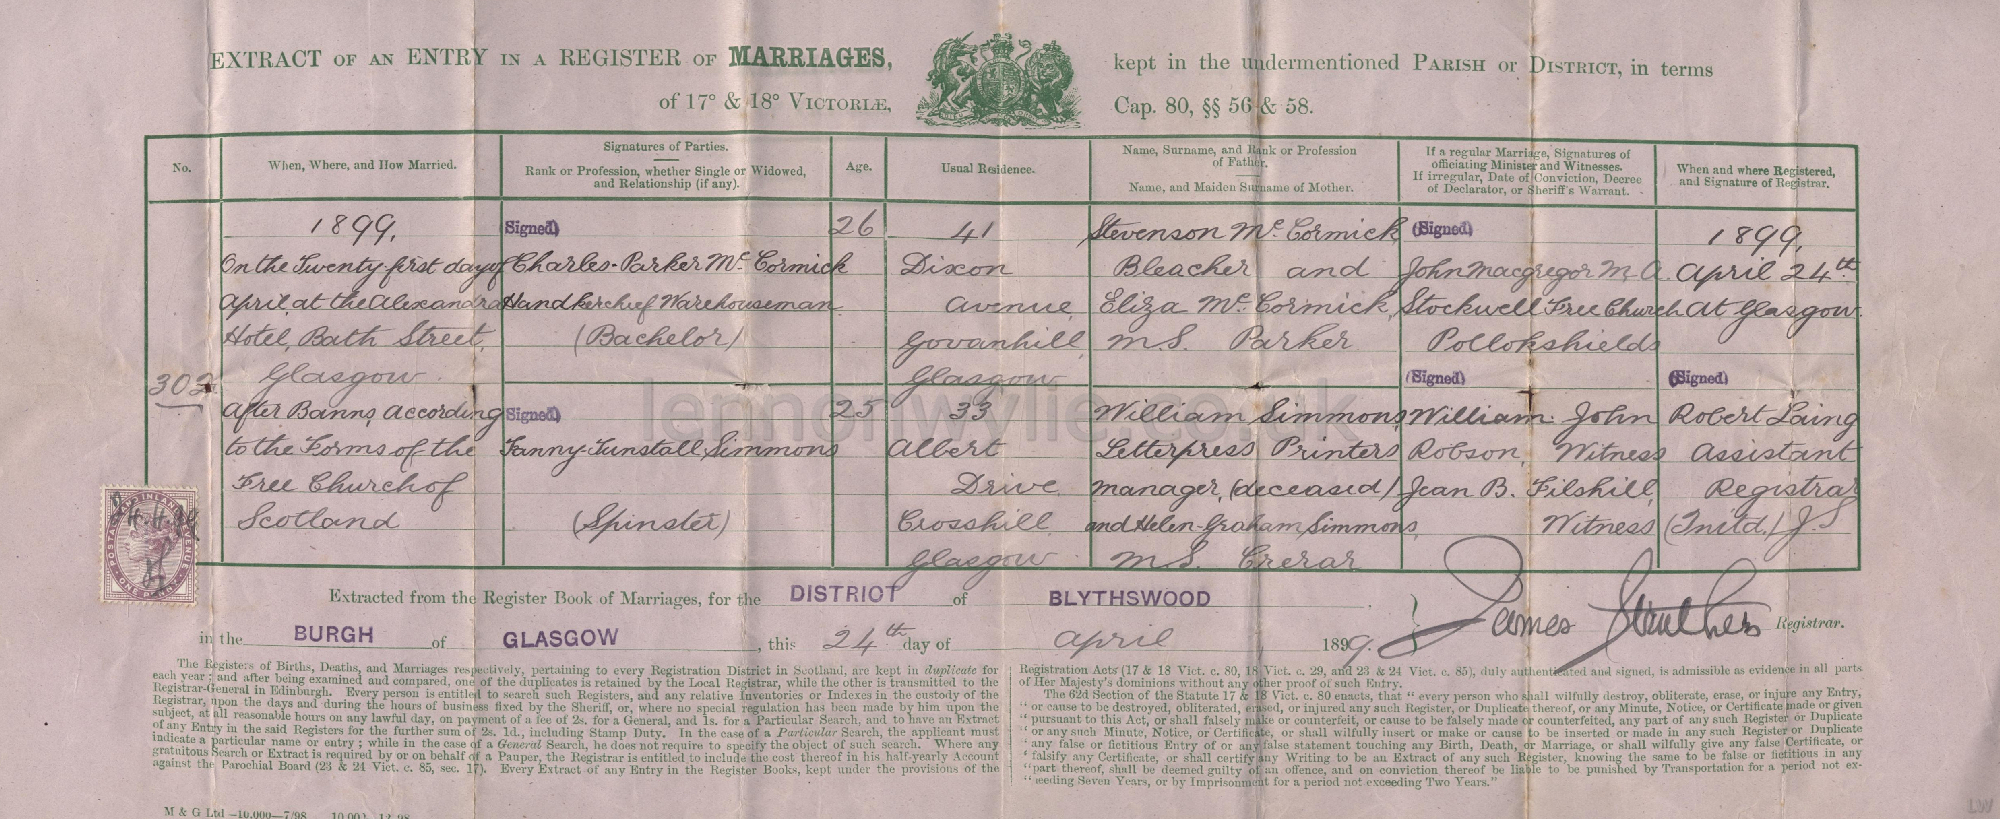 EXTRACT OF AN ENTRY IN A REGISTER OF MARRIAGES, kept in the undermentioned PARISH OR DISTRICT, in terms
of 17° & 18° VICTORIÆ, Cap. 80, §§ 56 & 58.
No.
When, Where, and How Married.
Signatures of Parties.
Rank or Profession, whether Single or Widowed,
and Relationship (if any).
Age.
Usual Residence.
Name, Surname, and Rank or Profession
of Father.
Name, and Maiden Surname of Mother.
If a regular Marriage, Signatures of
officiating Minister and Witnesses.
If irregular, Date of Conviction, Decree
of Declarator, or Sheriff's Warrant.
When and where Registered,
and Signature of Registrar.
302
1899,
On the Twenty first day of
April, at the Alexandra
Hotel, Bath Street,
Glasgow
After Banns, According
to the Forms of the
Free Church of
Scotland
(Signed)
Charles Parker Mc Cormick
Handkerchief Warehouseman
(Bachelor)
(Signed)
Fanny Tunstall Simmons
(Spinster)
26
25
41
Dixon
Avenue,
Govanhill,
Glasgow
33
Albert
Drive
Crosshill
Glasgow
Stevenson Mc Cormick
Bleacher and
Eliza Mc Cormick,
M.S. Parker
William Simmons,
Letterpress Printers
Manager, (deceased)
and Helen Graham Simmons,
M.S. Crerar
(Signed)
John Macgregor M.A.
Stockwell Free Church
Pollokshields
(Signed)
William John
Robson, Witness
Jean B. Filshill,
Witness
1899,
April 24th
At Glasgow.
(Signed)
Robert Laing
Assistant
Registrar
(Initd.) J.S
Extracted from the Register Book of Marriages, for the DISTRICT of BLYTHSWOOD
in the BURGH of GLASGOW, this 24th day of April 1899. James Struthers Registrar.
The Registers of Births, Deaths, and Marriages respectively, pertaining to every Registration District in Scotland, are kept in duplicate for
each year; and after being examined and compared, one of the duplicates is retained by the Local Registrar, while the other is transmitted to the
Registrar-General in Edinburgh. Every person is entitled to search such Registers, and any relative Inventories or Indexes in the custody of the
Registrar, upon the days and during the hours of business fixed by the Sheriff, or, where no special regulation has been made by him upon the
subject, at all reasonable hours on any lawful day, on payment of a fee of 2s. for a General, and 1s. for a Particular Search, and to have an Extract
of any Entry in the said Registers for the further sum of 2s. 1d., including Stamp Duty. In the case of a Particular Search, the applicant must
indicate a particular name or entry; while in the case of a General Search, he does not require to specify the object of such search. Where any
gratuitous Search or Extract is required by or on behalf of a Pauper, the Registrar is entitled to include the cost thereof in his half-yearly Account
against the Parochial Board (23 & 24 Vict. c. 85, sec. 17). Every Extract of any Entry in the Register Books, kept under the provisions of the
Registration Acts (17 & 18 Vict. c. 80, 18 Vict. c. 29, and 23 & 24 Vict. c. 85), duly authenticated and signed, is admissible as evidence in all parts
of Her Majesty's dominions without any other proof of such Entry.
The 62d Section of the Statute 17 & 18 Vict. c. 80 enacts, that "every person who shall wilfully destroy, obliterate, erase, or injure any Entry,
"or cause to be destroyed, obliterated, erased, or injured any such Register, or Duplicate thereof, or any Minute, Notice, or Certificate made or given
"pursuant to this Act, or shall falsely make or counterfeit, or cause to be falsely made or counterfeited, any part of any such Register or Duplicate
"or any such Minute, Notice, or Certificate, or shall wilfully insert or make or cause to be inserted or made in any such Register or Duplicate
"any false or fictitious Entry of or any false statement touching any Birth, Death, or Marriage, or shall wilfully give any false Certificate, or
"falsify any Certificate, or shall certify any Writing to be an Extract of any such Register, knowing the same to be false or fictitious in any
"part thereof, shall be deemed guilty of an offence, and on conviction thereof be liable to be punished by Transportation for a period not ex-
"ceeding Seven Years, or by Imprisonment for a period not exceeding Two Years."
M & G Ltd—10,000—7/98
lennonwylie.co.uk
LW